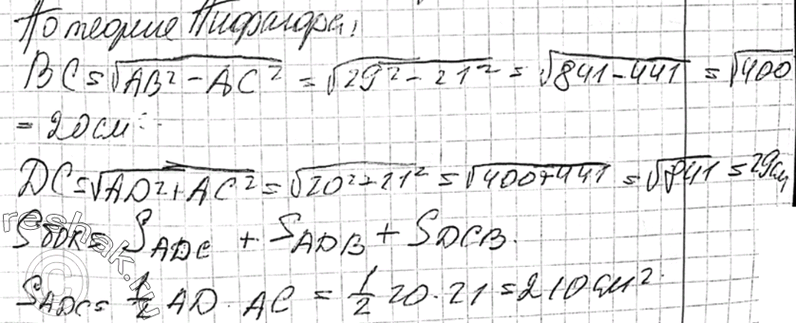 По теореме Пифагора:
BC = √AB² - AC² = √29² - 21² = √841 - 441 = √400
= 20 см.
DC = √AD² + AC² = √20² + 21² = √400 + 441 = √841 = 29 см
Sбок = S_ADC + S_ADB + S_DCB.
S_ADC = 1/2 AD · AC = 1/2 20 · 21 = 210 см².
reshak.ru